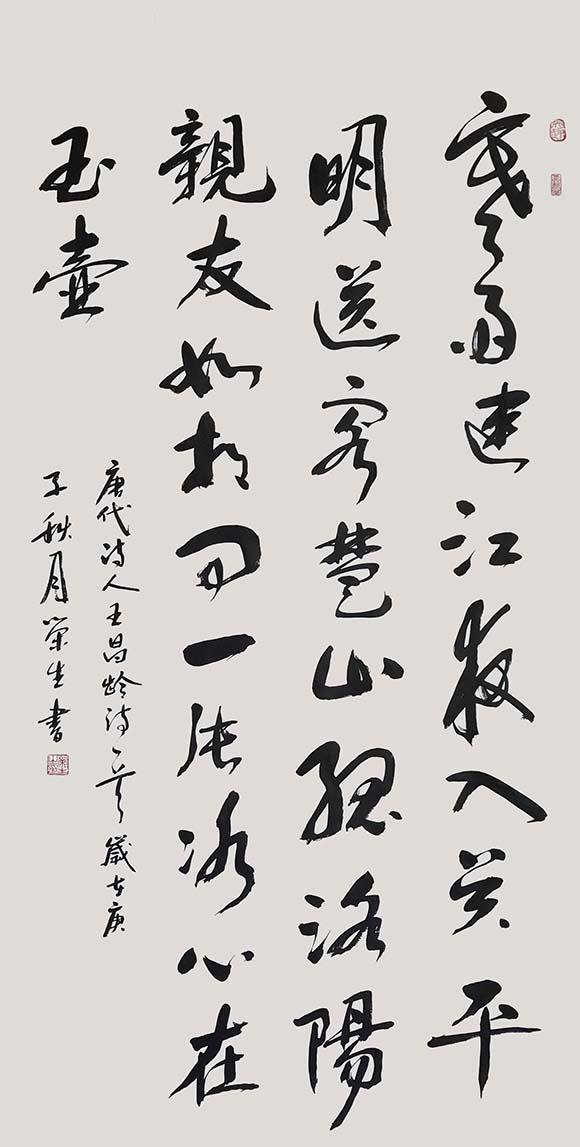 寒雨連江夜入吴平
明送客楚山孤洛陽
親友如相问一片冰心在
玉壷
唐代诗人王昌龄诗一首歲在庚
子秋月荣生書